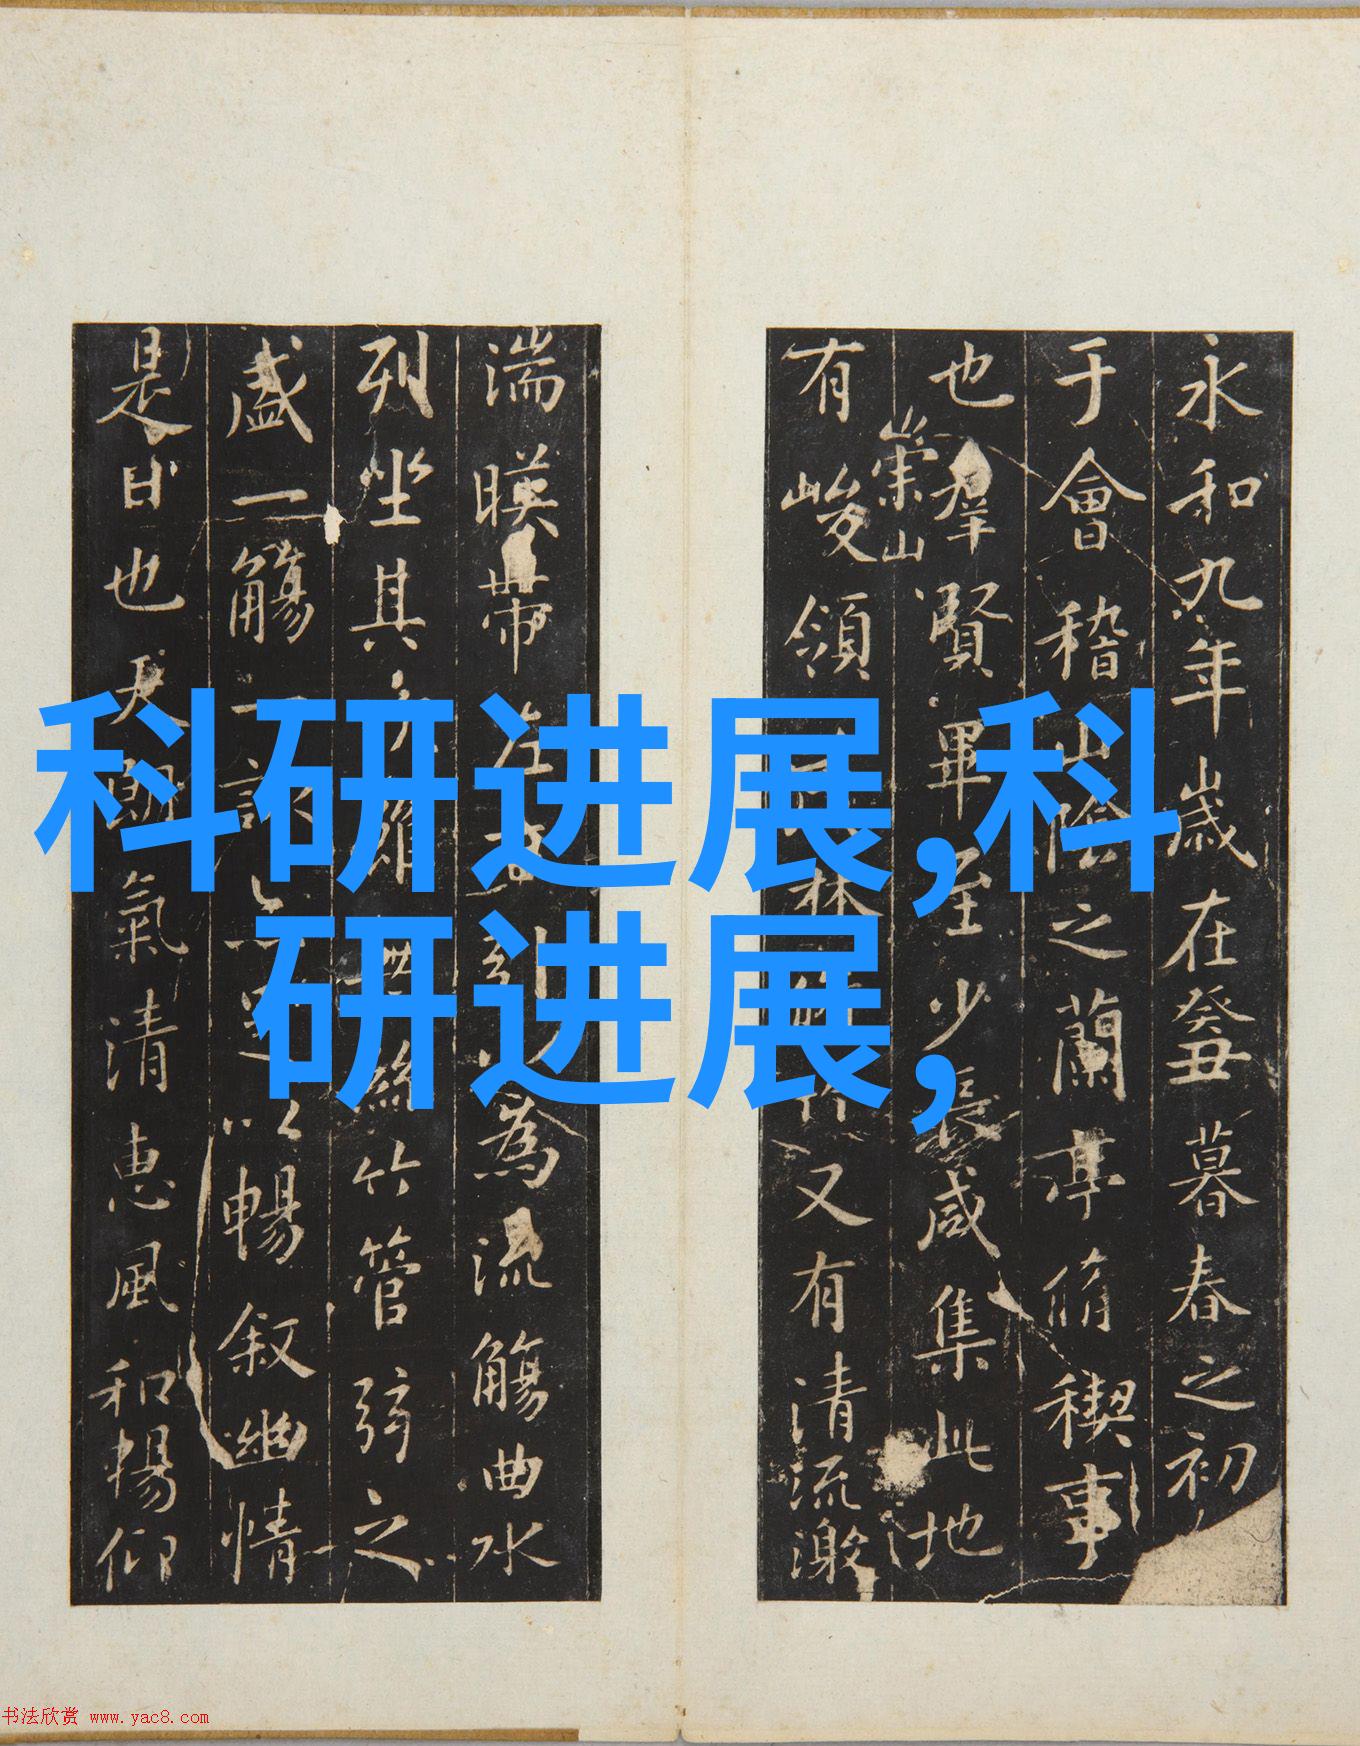 永和九年歲在癸丑暮春之初
于會稽山陰之蘭亭脩禊事
也群賢畢至少長咸集此地
崇山
有峻領林竹又有清流激
湍暎帶左引為流觴曲水
列坐其雖絲竹管弦之
盛一觴一以暢叙幽情
是日也天朗氣清惠風和暢仰
科研进展,科
研进展,
书法欣赏 www.yac8.com